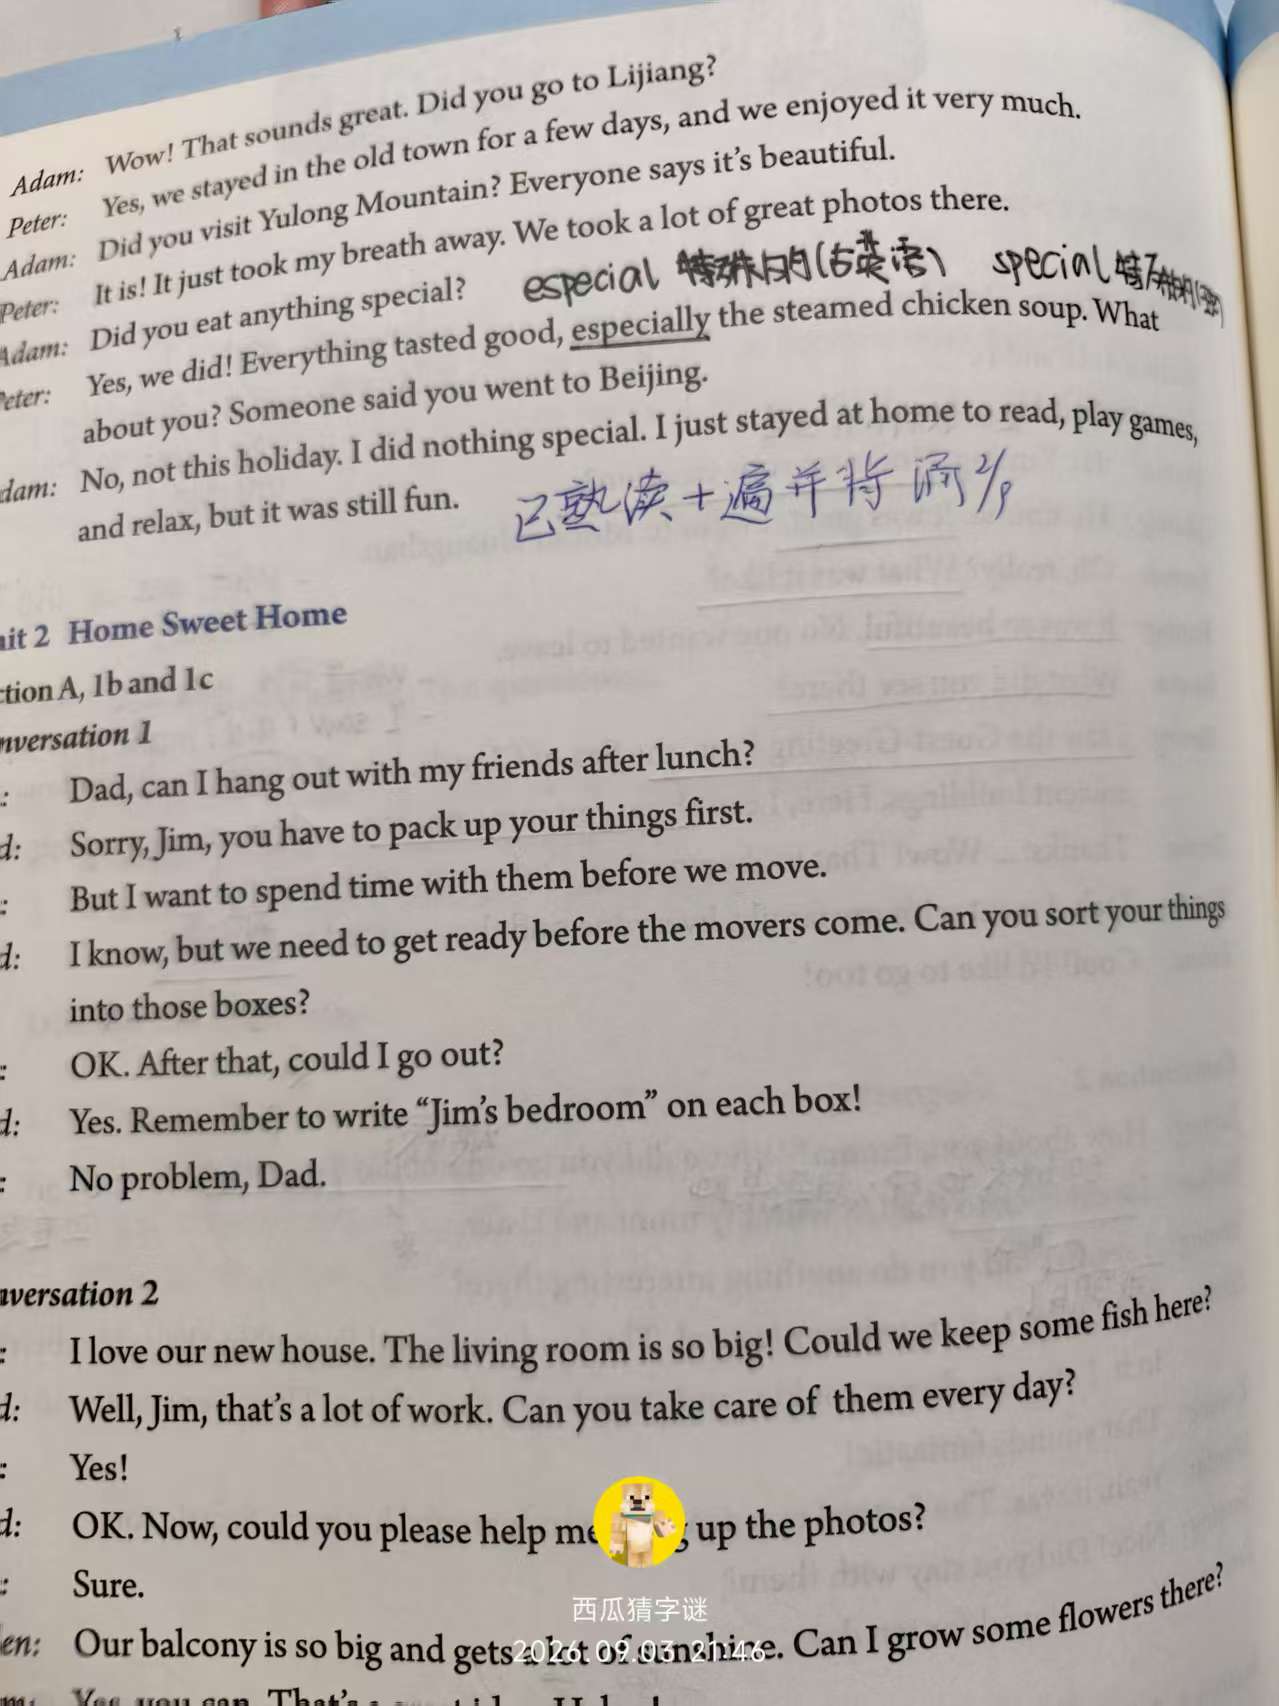 Adam: Wow! That sounds great. Did you go to Lijiang?
Peter: Yes, we stayed in the old town for a few days, and we enjoyed it very much.
Adam: Did you visit Yulong Mountain? Everyone says it's beautiful.
Peter: It is! It just took my breath away. We took a lot of great photos there.
Adam: Did you eat anything special?
especial 特殊的(古英语) special 特殊的
eter: Yes, we did! Everything tasted good, especially the steamed chicken soup. What
about you? Someone said you went to Beijing.
dam: No, not this holiday. I did nothing special. I just stayed at home to read, play games,
and relax, but it was still fun.
已熟读十遍并将
nit 2 Home Sweet Home
ction A, 1b and 1c
nversation 1
: Dad, can I hang out with my friends after lunch?
d: Sorry, Jim, you have to pack up your things first.
: But I want to spend time with them before we move.
d: I know, but we need to get ready before the movers come. Can you sort your things
into those boxes?
: OK. After that, could I go out?
d: Yes. Remember to write “Jim's bedroom” on each box!
: No problem, Dad.
nversation 2
: I love our new house. The living room is so big! Could we keep some fish here?
d: Well, Jim, that's a lot of work. Can you take care of them every day?
: Yes!
d: OK. Now, could you please help me up the photos?
: Sure.
西瓜猜字谜
en: Our balcony is so big and gets a lot of sunshine. Can I grow some flowers there?
2026.09.03 21:46
Yes, you can. That's